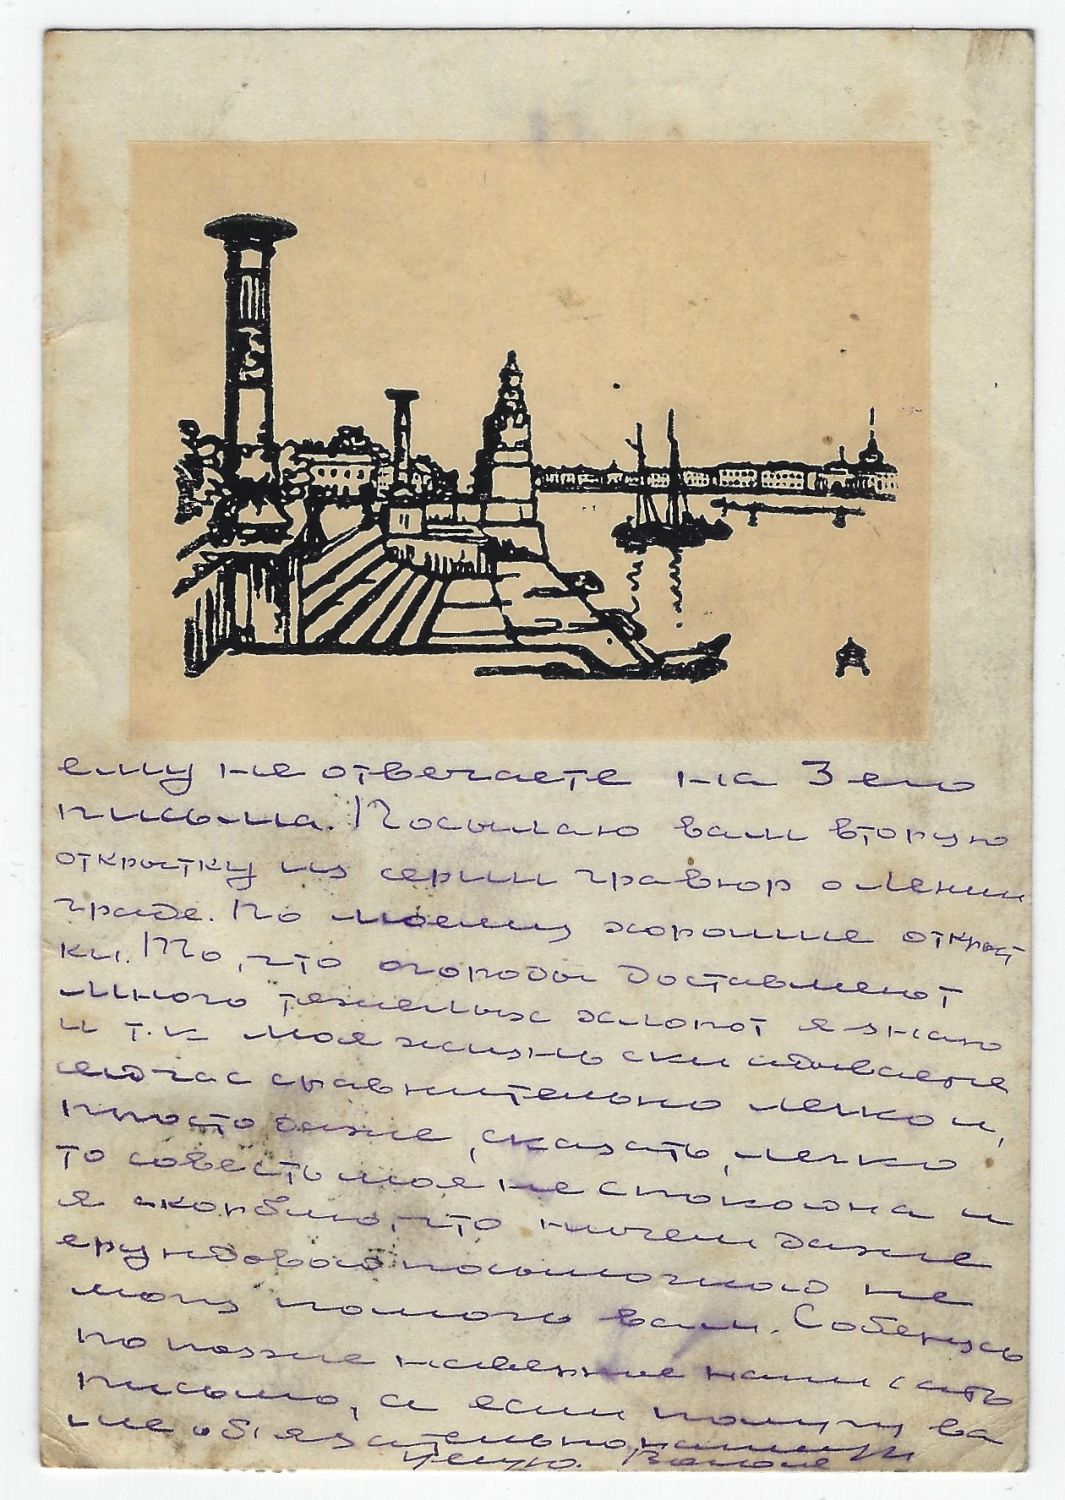 ему не отвечаете на 3 его
письма. Посылаю вам вторую
открытку из серии гравюр о Ленин
граде. По моему хорошие открыт
ки. То, что огороды доставляют
много тяжелых хлопот я знаю
и т.к. моя жизнь складывается
сейчас сравнительно легко и,
просто даже, сказать, легко
то совесть моя не спокойна и
я скорблю, что ничем даже
ерундовой посылочкой не
могу помочь вам. Соберусь
по позже наверное написать
письмо, а если получу ва
ше обязательно напишу
Целую.